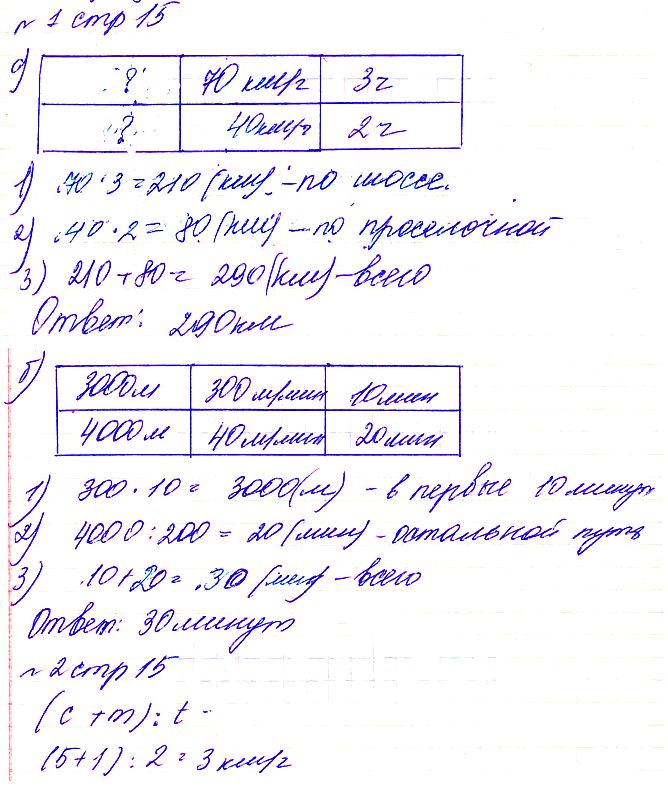 № 1 стр 15
а)
? 70 км/г 3 г
? 40 км/г 2 г
1) 70 · 3 = 210 (км) – по шоссе.
2) 40 · 2 = 80 (км) – по проселочной
3) 210 + 80 = 290 (км) – всего
Ответ: 290 км
б)
3000 м 300 м/мин 10 мин
4000 м 40 м/мин 20 мин
1) 300 · 10 = 3000 (м) – в первые 10 минут
2) 4000 : 200 = 20 (мин) – остальной путь
3) 10 + 20 = 30 (мин) – всего
Ответ: 30 минут
№ 2 стр 15
(c + m) : t -
(5+1) : 2 = 3 км/г